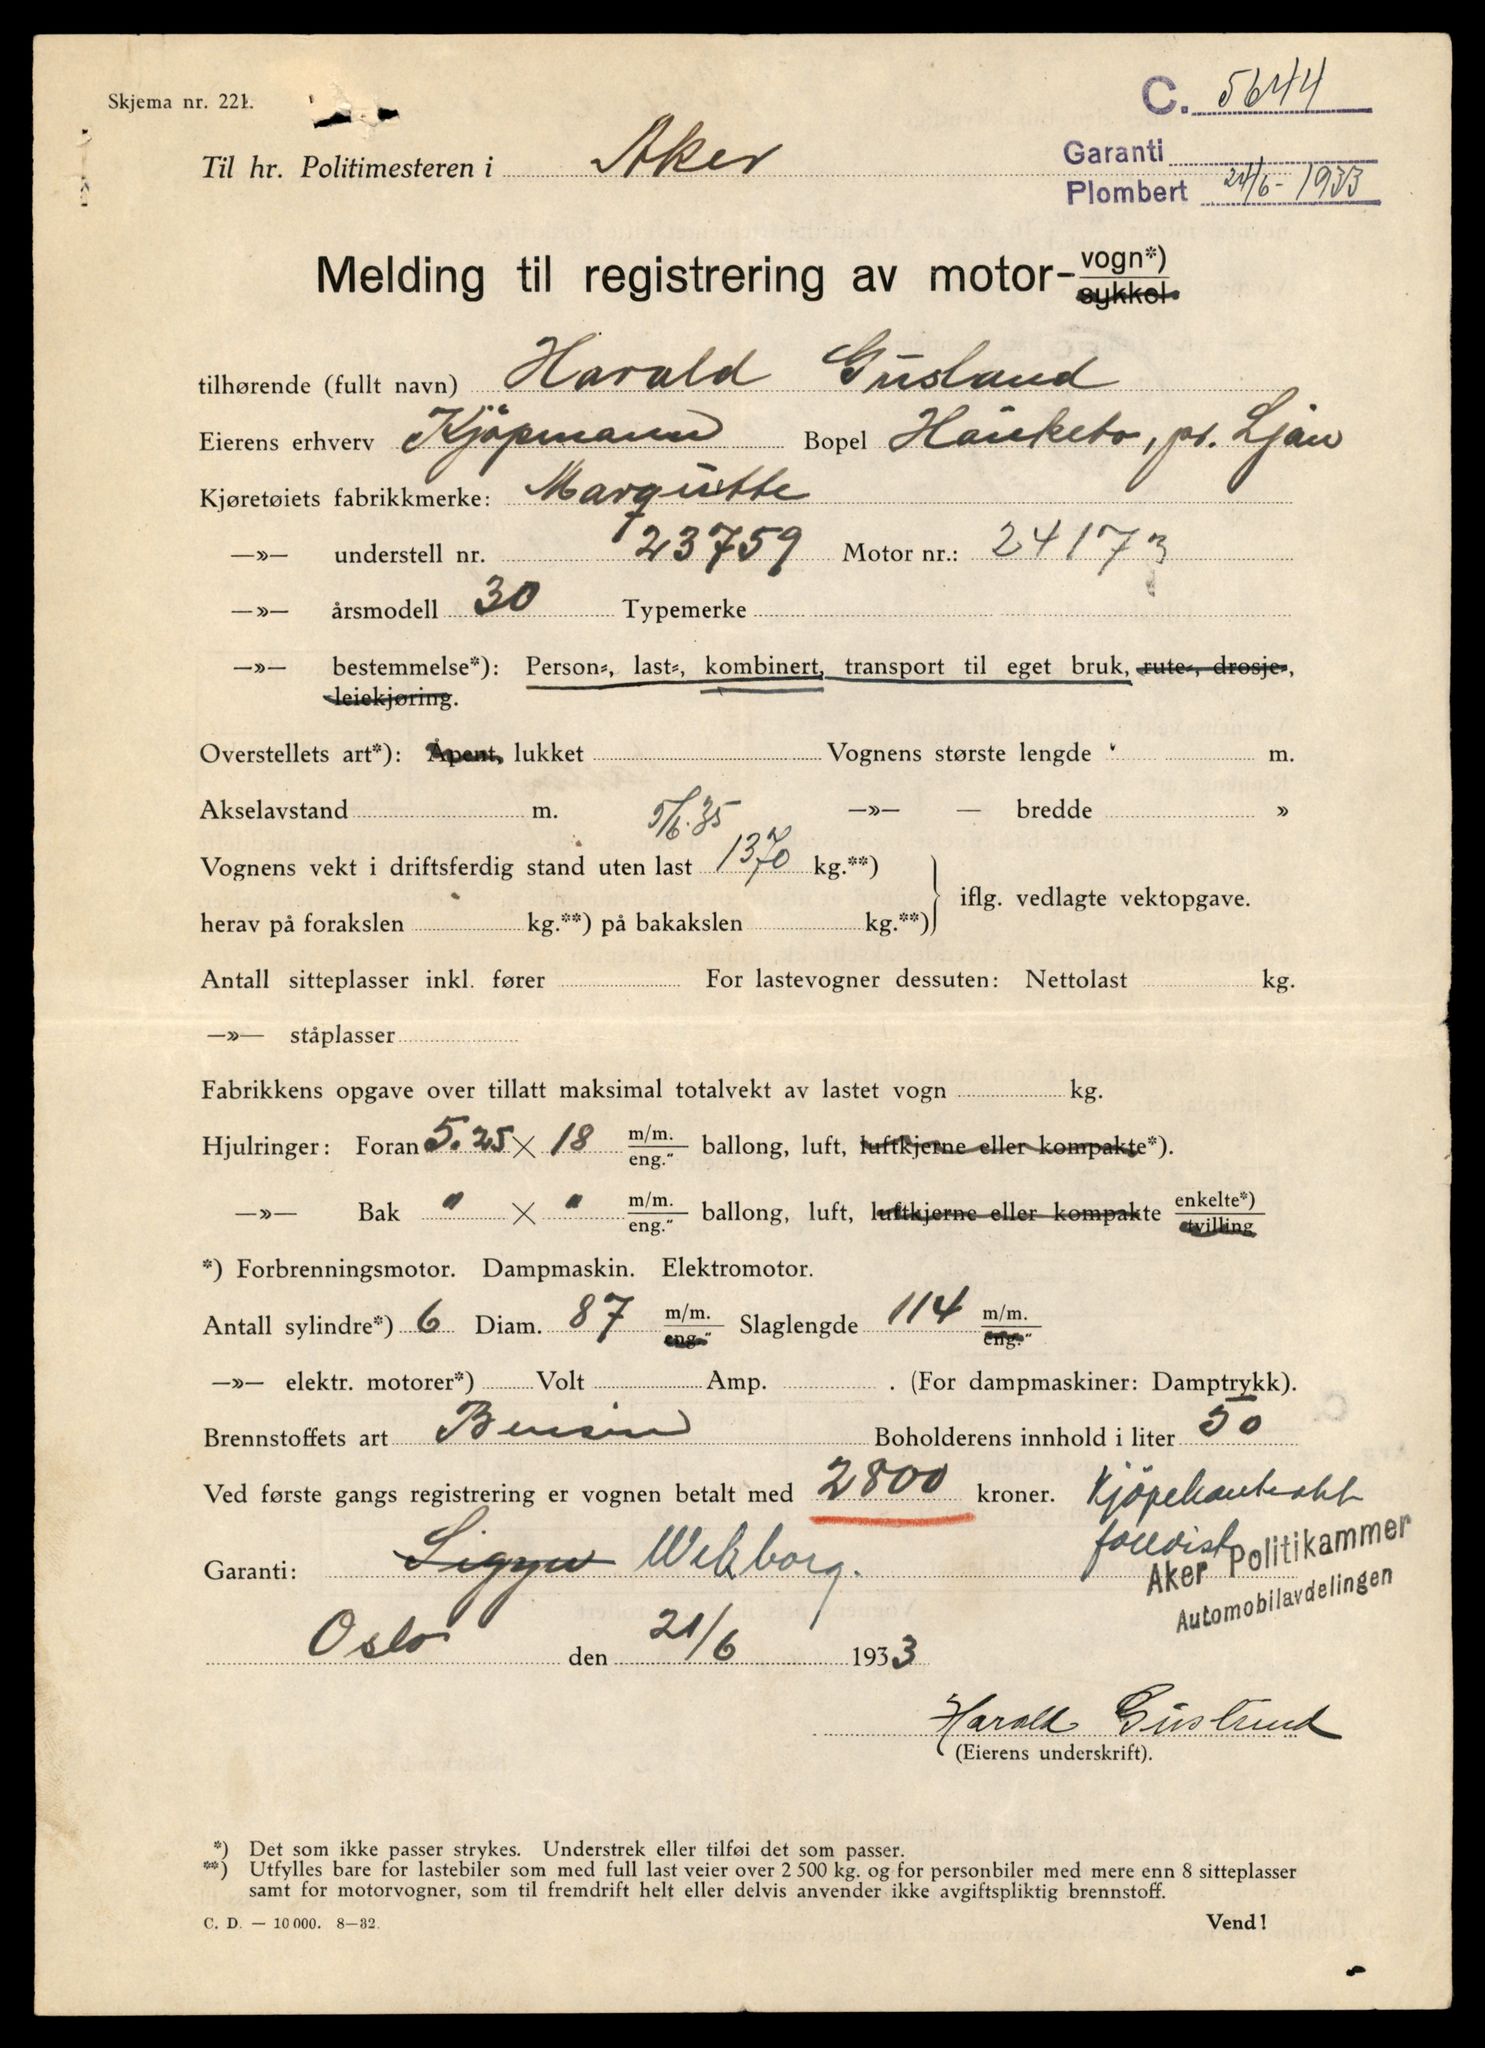 Skjema nr. 221.
C. 5644
Til hr. Politimesteren i Aker
Garanti
Plombert 24/6 - 1933
Melding til registrering av motor- vogn*)
sykkel
tilhørende (fullt navn) Harald Gusland
Eierens erhverv Kjöpmann Bopel Hauketo, pr. Ljan
Kjøretøiets fabrikkmerke: Marquette
—»— understell nr. 23759 Motor nr.: 24173
—»— årsmodell 30 Typemerke
—»— bestemmelse*): Person-, last-, kombinert, transport til eget bruk, rute-, drosje-,
leiekjøring.
Overstellets art*): Åpent, lukket Vognens største lengde m.
Akselavstand m. 5/6.35 —»— — bredde »
Vognens vekt i driftsferdig stand uten last 1370 kg.**)
iflg. vedlagte vektopgave.
herav på forakslen kg.**) på bakakslen kg.**)
Antall sitteplasser inkl. fører For lastevogner dessuten: Nettolast kg.
—»— ståplasser
Fabrikkens opgave over tillatt maksimal totalvekt av lastet vogn kg.
Hjulringer: Foran 5.25 × 18 m/m. eng.″ ballong, luft, luftkjerne eller kompakte*).
—»— Bak " × " m/m. eng.″ ballong, luft, luftkjerne eller kompakte enkelte*) tvilling
*) Forbrenningsmotor. Dampmaskin. Elektromotor.
Antall sylindre*) 6 Diam. 87 m/m. eng.″ Slaglengde 114 m/m. eng.″
—»— elektr. motorer*) Volt Amp. . (For dampmaskiner: Damptrykk).
Brennstoffets art Bensin Boholderens innhold i liter 50
Ved første gangs registrering er vognen betalt med 2800 kroner. Kjöpekontrakt
forevist
Garanti: Sigyn Wekborg.
Aker Politikammer
Automobilavdelingen
Oslo den 21/6 1933
Harald Gusland
(Eierens underskrift).
*) Det som ikke passer strykes. Understrek eller tilføi det som passer.
**) Utfylles bare for lastebiler som med full last veier over 2 500 kg. og for personbiler med mere enn 8 sitteplasser
samt for motorvogner, som til fremdrift helt eller delvis anvender ikke avgiftspliktig brennstoff.
C. D. — 10 000. 8—32.
Vend!